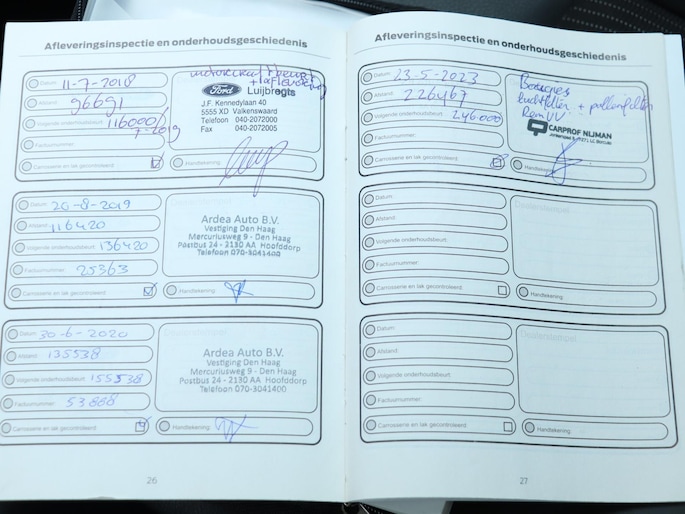 Afleveringsinspectie en onderhoudsgeschiedenis
Datum: 11-7-2018
Afstand: 96691
Volgende onderhoudsbeurt: 116000/
7-2019
Factuurnummer:
Carrosserie en lak gecontroleerd:
+ aflevering
Ford Luijbregts
J.F. Kennedylaan 40
5555 XD Valkenswaard
Telefoon 040-2072000
Fax 040-2072005
Handtekening:
Datum: 20-8-2019
Afstand: 116420
Volgende onderhoudsbeurt: 136420
Factuurnummer: 25363
Carrosserie en lak gecontroleerd:
Ardea Auto B.V.
Vestiging Den Haag
Mercuriusweg 9 - Den Haag
Postbus 24 - 2130 AA Hoofddorp
Telefoon 070-3041400
Handtekening:
Datum: 30-6-2020
Afstand: 135538
Volgende onderhoudsbeurt: 155538
Factuurnummer: 53888
Carrosserie en lak gecontroleerd:
Ardea Auto B.V.
Vestiging Den Haag
Mercuriusweg 9 - Den Haag
Postbus 24 - 2130 AA Hoofddorp
Telefoon 070-3041400
Handtekening:
26
Afleveringsinspectie en onderhoudsgeschiedenis
Datum: 23-5-2023
Afstand: 226467
Volgende onderhoudsbeurt: 246000
Factuurnummer:
Carrosserie en lak gecontroleerd:
Bougies
luchtfilter + pollenfilter
Rem VV
CARPROF NIJMAN
Handtekening:
Datum:
Afstand:
Volgende onderhoudsbeurt:
Factuurnummer:
Carrosserie en lak gecontroleerd:
Dealerstempel
Handtekening:
Datum:
Afstand:
Volgende onderhoudsbeurt:
Factuurnummer:
Carrosserie en lak gecontroleerd:
Dealerstempel
Handtekening:
27